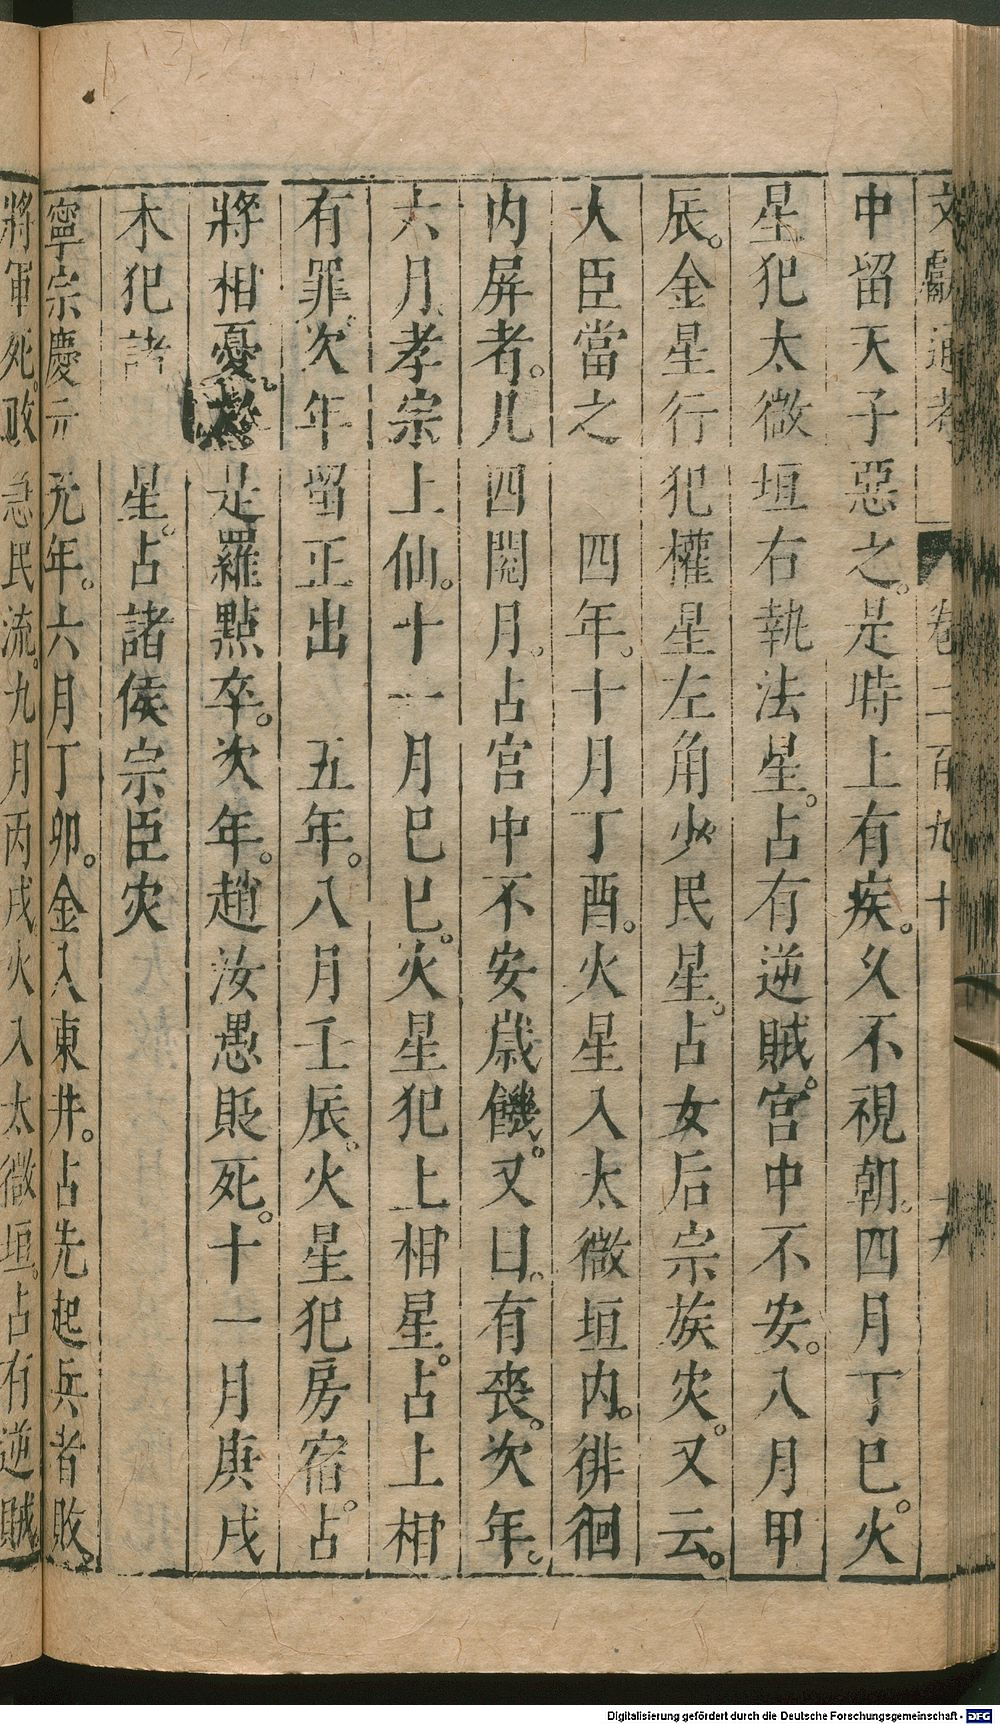 文獻通考 卷二百九十 十九
中留天子惡之。是時上有疾。久不視朝。四月丁巳。火
星犯太微垣右執法星。占有逆賊。宮中不安。八月甲
辰。金星行犯權星左角少民星。占女后宗族灾。又云。
大臣當之 四年。十月丁酉。火星入太微垣内。徘徊
内屏者。凡四閱月。占宮中不安歲饑。又曰。有喪。次年。
六月。孝宗上仙。十一月巳巳。火星犯上相星。占上相
有罪。次年留正出 五年。八月壬辰。火星犯房宿。占
將相憂。 是羅點卒。次年。趙汝愚貶死。十一月庚戌
木犯諸星。占諸侯宗臣灾
寧宗慶元元年。六月丁卯。金入東井。占先起兵者敗。
將軍死。政急民流。九月丙戌火入太微垣。占有逆賊。
Digitalisierung gefördert durch die Deutsche Forschungsgemeinschaft - DFG